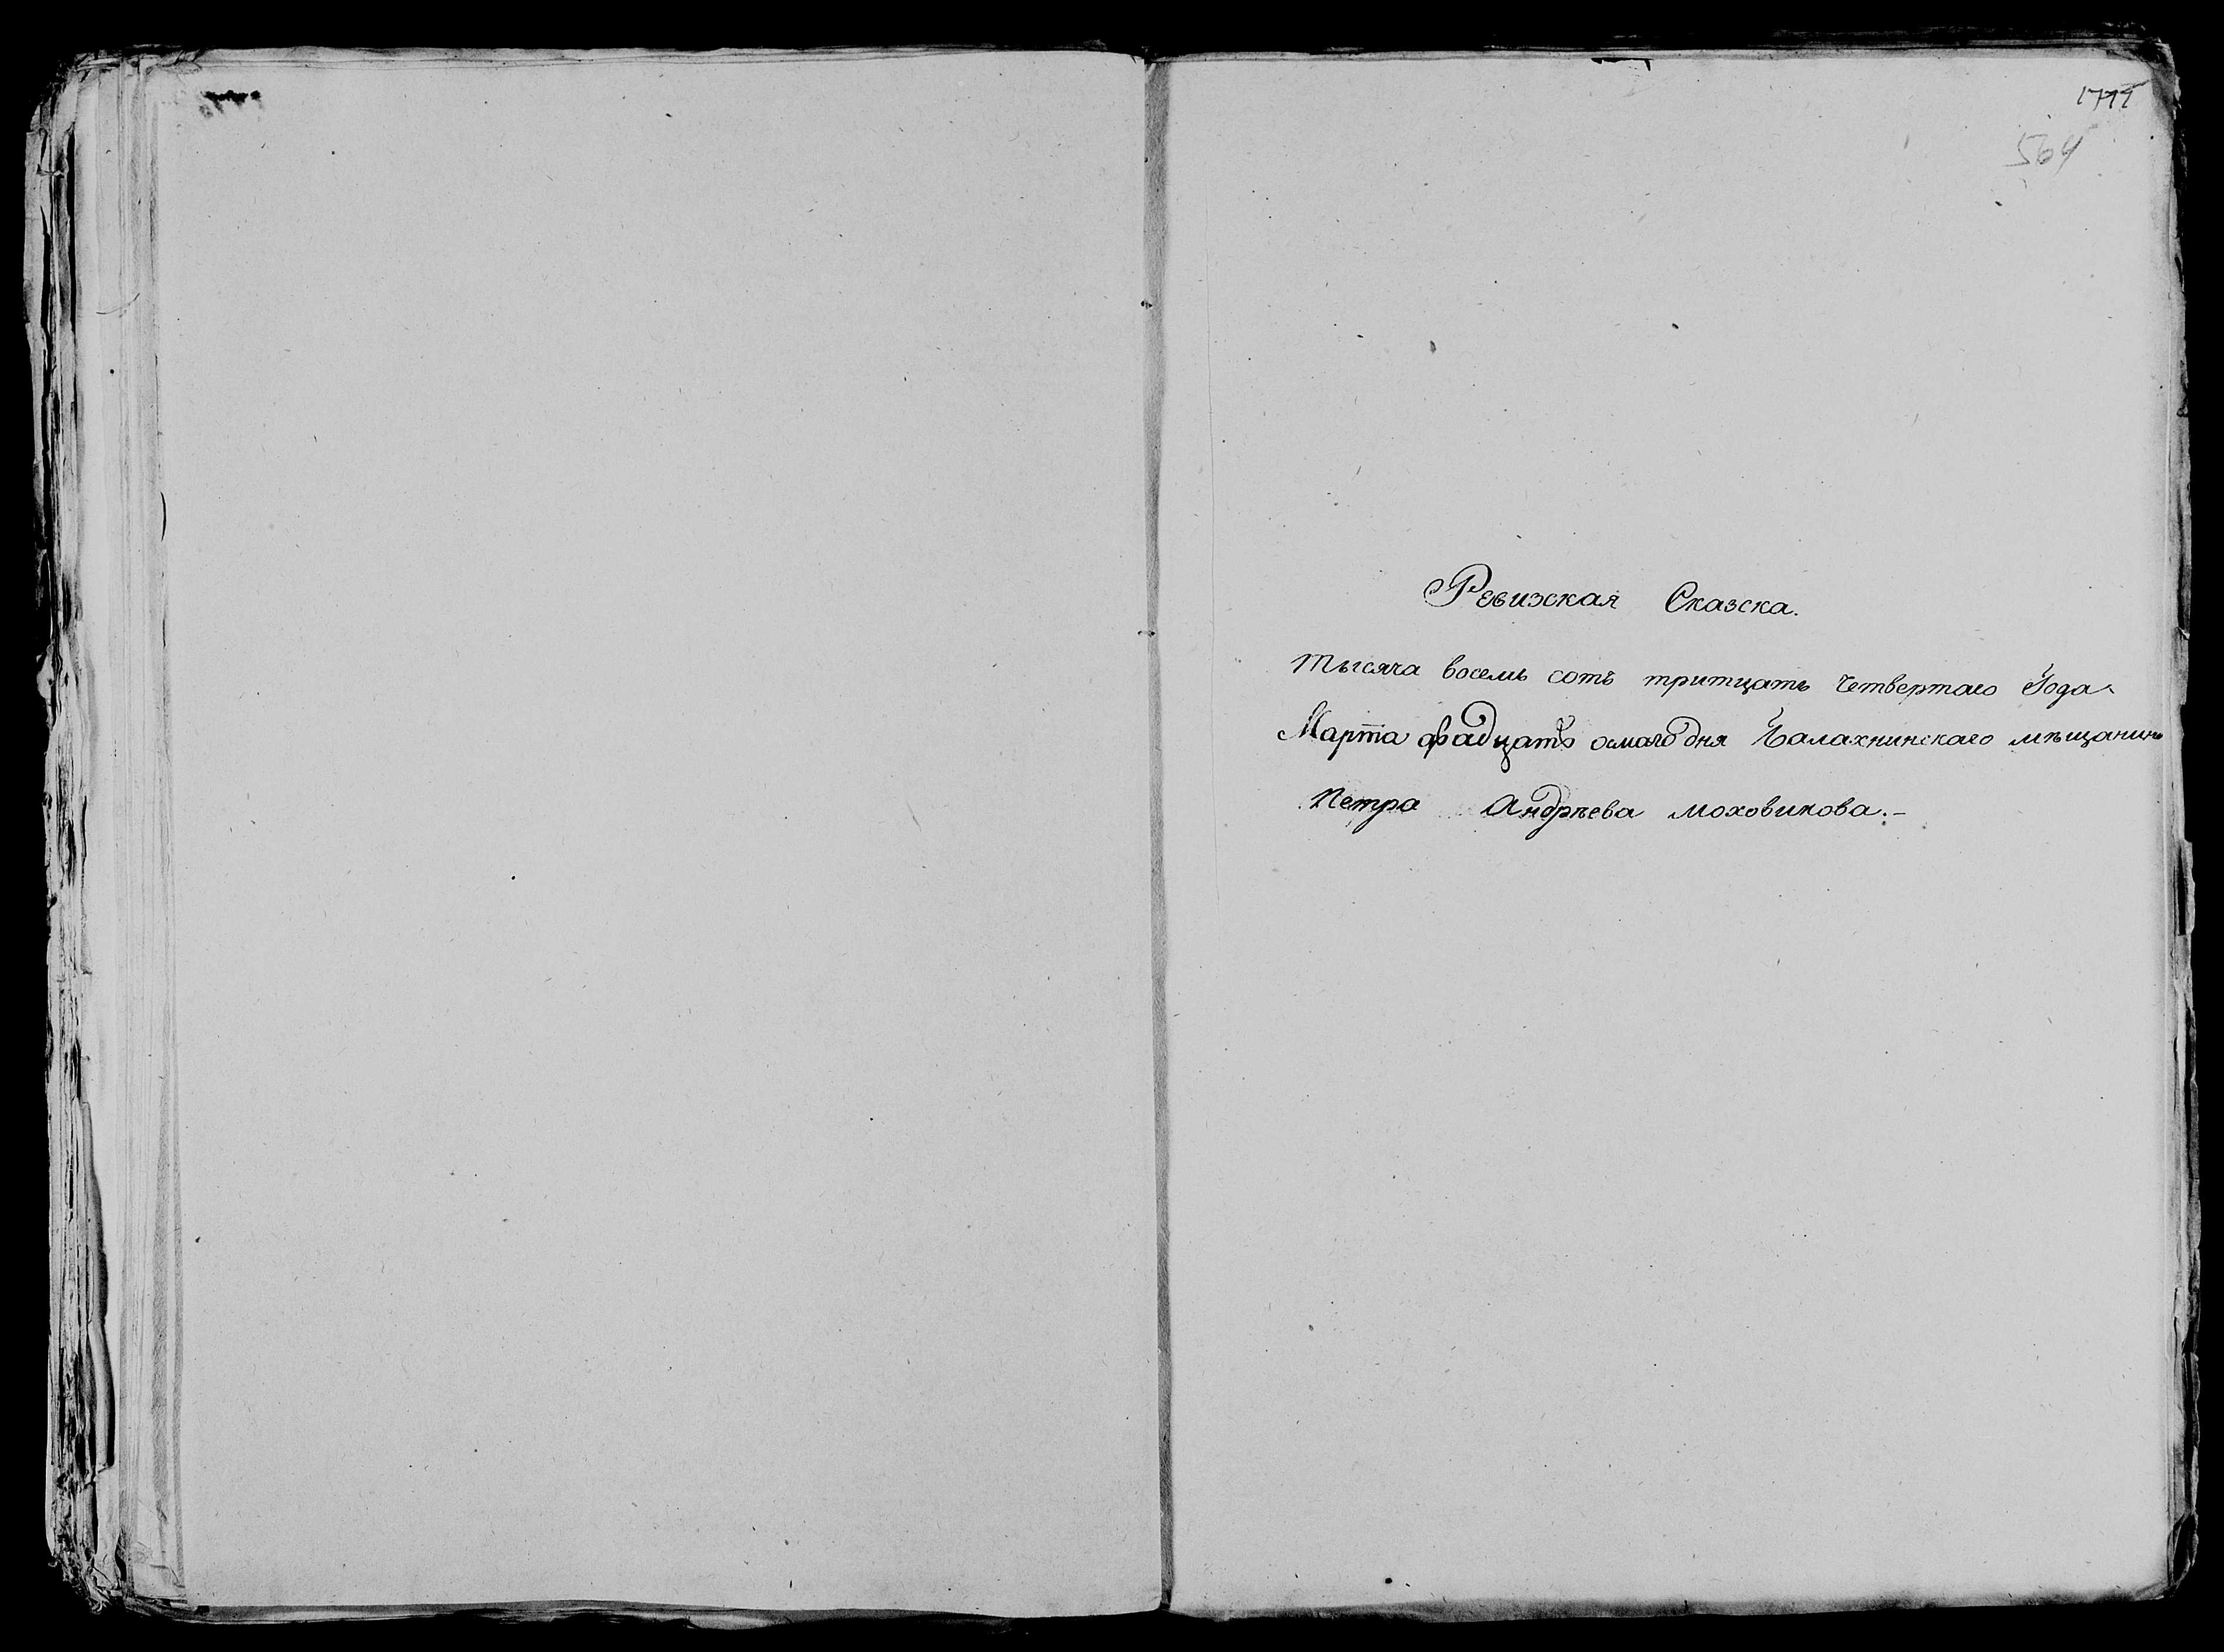 564
Ревизская Сказска.
Тысяча восемь сотъ тритцать четвертаго Года
Марта двадцать осмаго дня Балахнинскаго мѣщанина
Петра Андрѣева моховикова.-